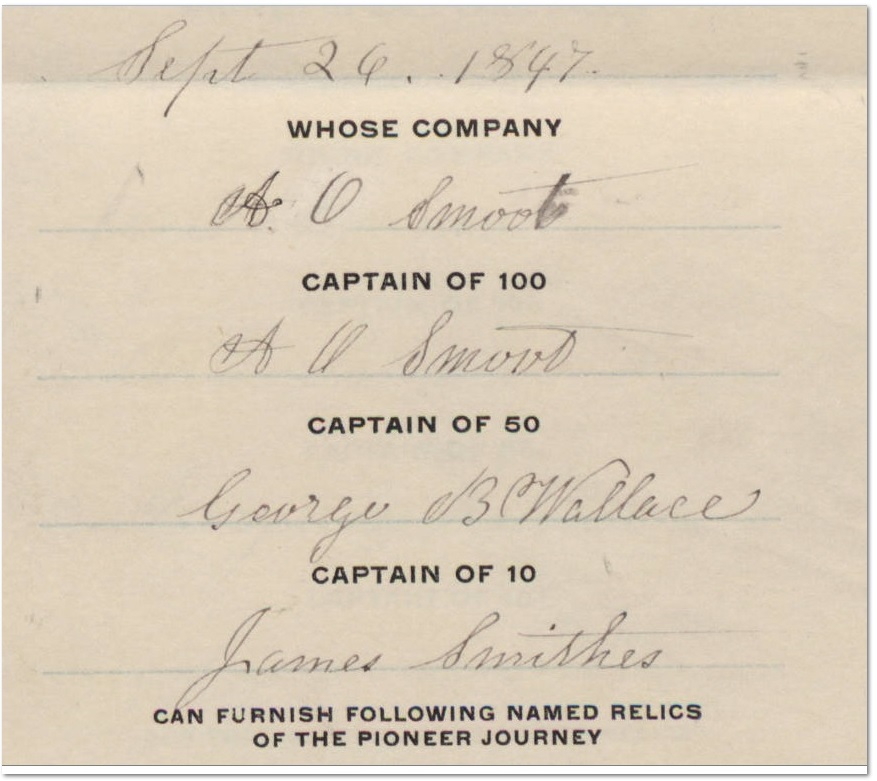 Sept 26. 1847.
WHOSE COMPANY
A. O Smoot
CAPTAIN OF 100
A O Smoot
CAPTAIN OF 50
George B Wallace
CAPTAIN OF 10
James Smithes
CAN FURNISH FOLLOWING NAMED RELICS
OF THE PIONEER JOURNEY